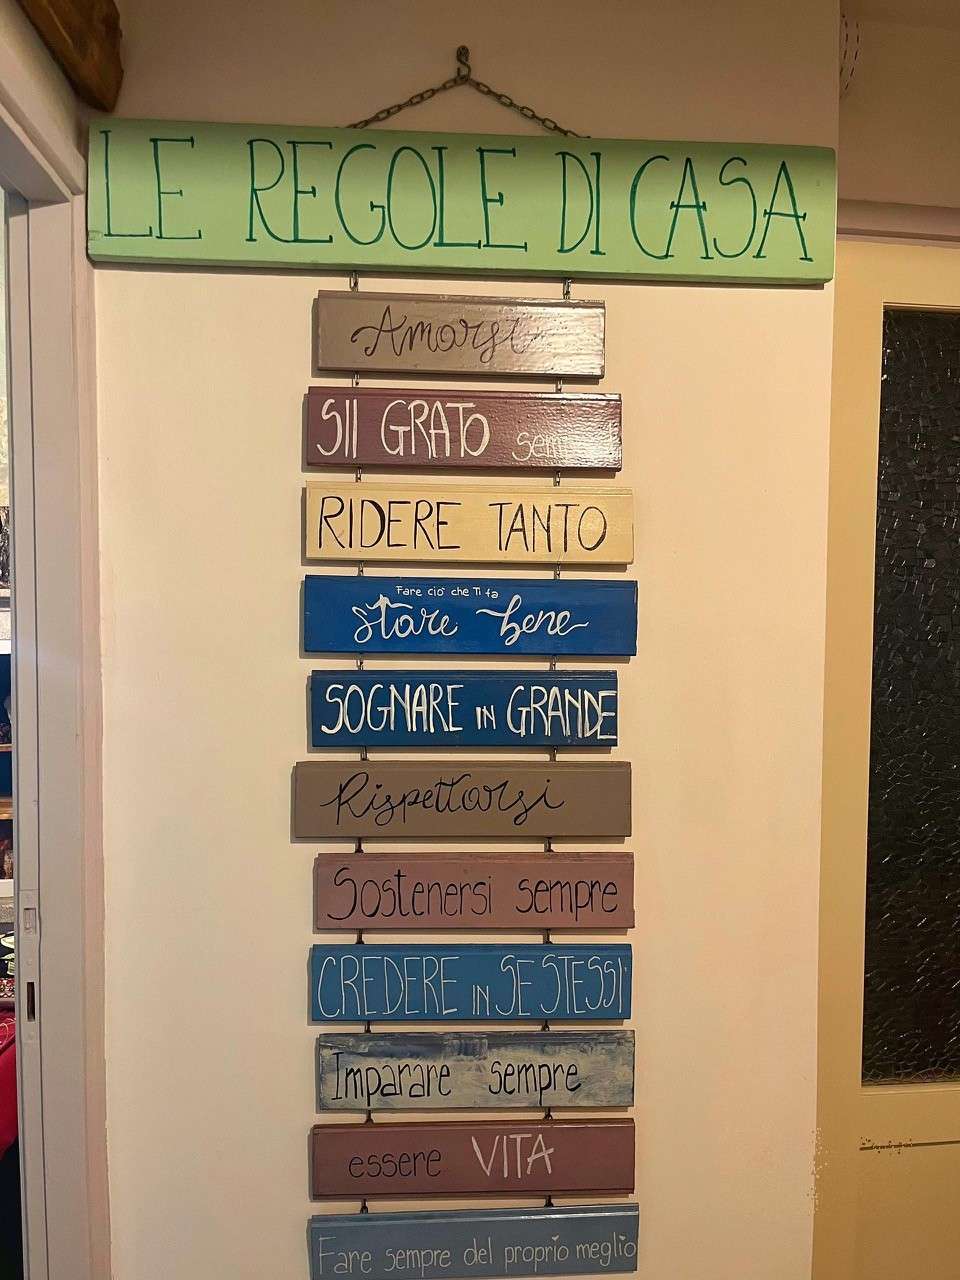 LE REGOLE DI CASA
Amarsi
SII GRATO
RIDERE TANTO
Fare ciò che Ti fa
stare bene
SOGNARE IN GRANDE
Rispettarsi
Sostenersi sempre
CREDERE IN SE STESSI
Imparare sempre
essere VITA
Fare sempre del proprio meglio